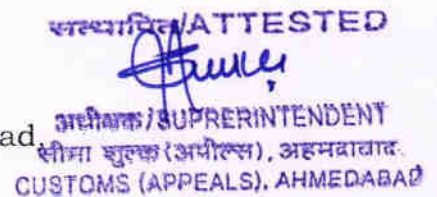 सत्यापित/ATTESTED
अधीक्षक/SUPRERINTENDENT
ad.
सीमा शुल्क (अपील्स), अहमदाबाद.
CUSTOMS (APPEALS), AHMEDABAD